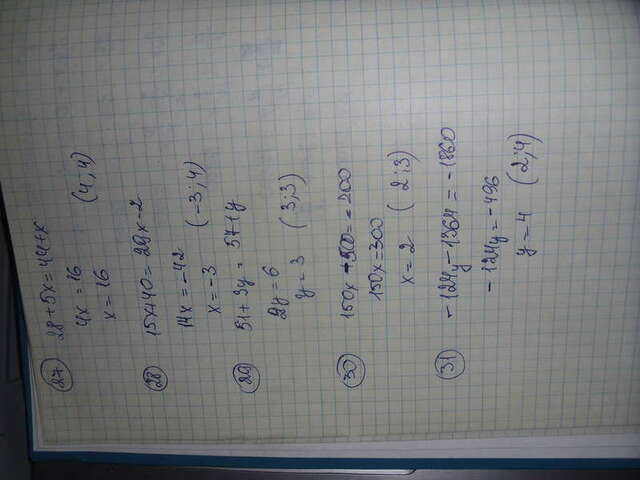 27 28+5x=44+x
4x=16
x=16 (4;4)
28 15x+40=29x-2
14x=-42
x=-3 (-3;4)
29 51+3y=57+y
2y=6
y=3 (3;3)
30 150x-500=-200
150x=300
x=2 (2;3)
31 -124y-1364=-1860
-124y=-496
y=4 (2;4)